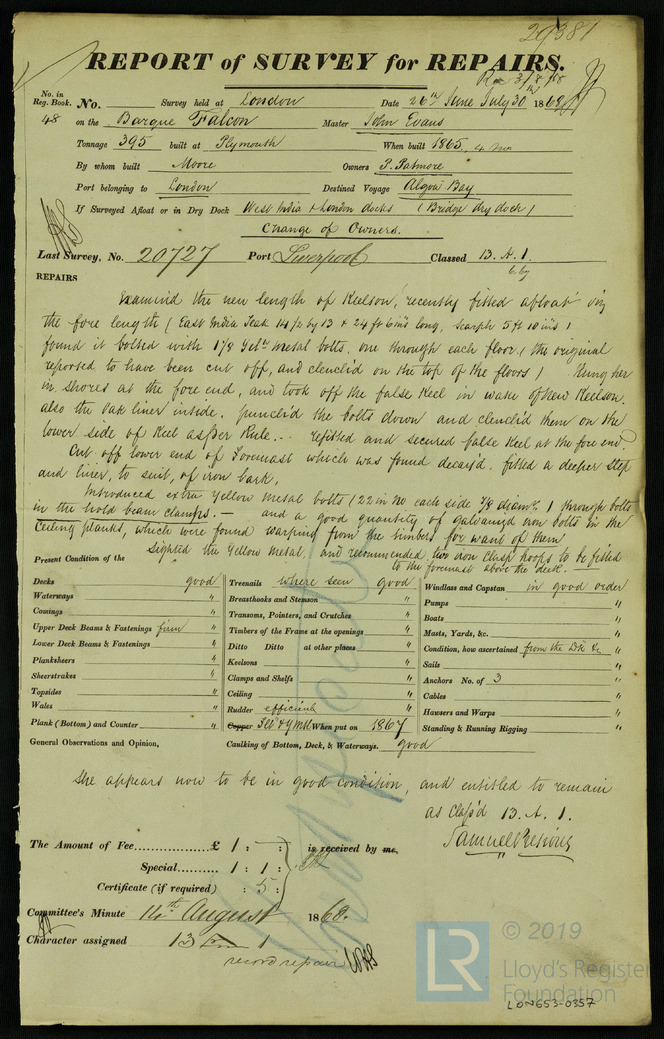 29381
REPORT of SURVEY for REPAIRS.
Rec 3/8/68
No. in Reg. Book. No. Survey held at London Date 26th June July 30 1868
48 on the Barque Falcon Master John Evans
Tonnage 395 built at Plymouth When built 1865, 4 mo
By whom built Moore Owners P. Patmore
Port belonging to London Destined Voyage Algoa Bay
If Surveyed Afloat or in Dry Dock West India & London docks (Bridge dry dock)
Change of Owners.
Last Survey, No. 20727 Port Liverpool Classed 13. A. 1.
REPAIRS
Examind the new length of Keelson, recently fitted afloat viz
the fore length (East India Teak 14 1/2 by 13 & 24 ft 6 ins long, scarph 5 ft 10 ins)
found it bolted with 1 1/8 Yelw metal bolts, one through each floor (the original
reported to have been cut off, and clench'd on the top of the floors) Hung her
in shores at the fore end, and took off the false Keel in wake of New Keelson,
also the oak liner inside. punch'd the bolts down and clench'd them on the
lower side of Keel as per Rule... refitted and secured false Keel at the fore end.
Cut off lower end of Foremast which was found decay'd. fitted a deeper Step
and liner, to suit, of iron bark,
Introduced extra Yellow metal bolts (22 in No each side 7/8 diamr.) through bolts
in the hold beam clamps. — and a good quantity of galvanizd iron bolts in the
Ceiling planks, which were found warping from the timbers for want of them
Sighted the Yellow Metal, and recommended two iron clasp hoops to be fitted
to the foremast above the deck.
Present Condition of the
Decks good Treenails where seen good Windlass and Capstan in good order
Waterways " Breasthooks and Stemson " Pumps "
Comings " Transoms, Pointers, and Crutches " Boats "
Upper Deck Beams & Fastenings firm " Timbers of the Frame at the openings " Masts, Yards, &c. "
Lower Deck Beams & Fastenings " Ditto Ditto at other places " Condition, how ascertained from the Dk &c
Planksheers " Keelsons " Sails "
Sheerstrakes " Clamps and Shelfs " Anchors No. of 3 "
Topsides " Ceiling " Cables "
Wales " Rudder efficient Hawsers and Warps "
Plank (Bottom) and Counter " Copper Felt & YMtl When put on 1867 Standing & Running Rigging "
General Observations and Opinion, Caulking of Bottom, Deck, & Waterways. good
She appears now to be in good condition, and entitled to remain
as Class'd 13. A. 1.
The Amount of Fee £ 1 : - : is received by me,
Special 1 : 1 :
Certificate (if required) : 5 :
Committee's Minute 14th August 1868.
Character assigned 13 1
record repair
LR
© 2019
Lloyd's Register
Foundation
LON653-0357